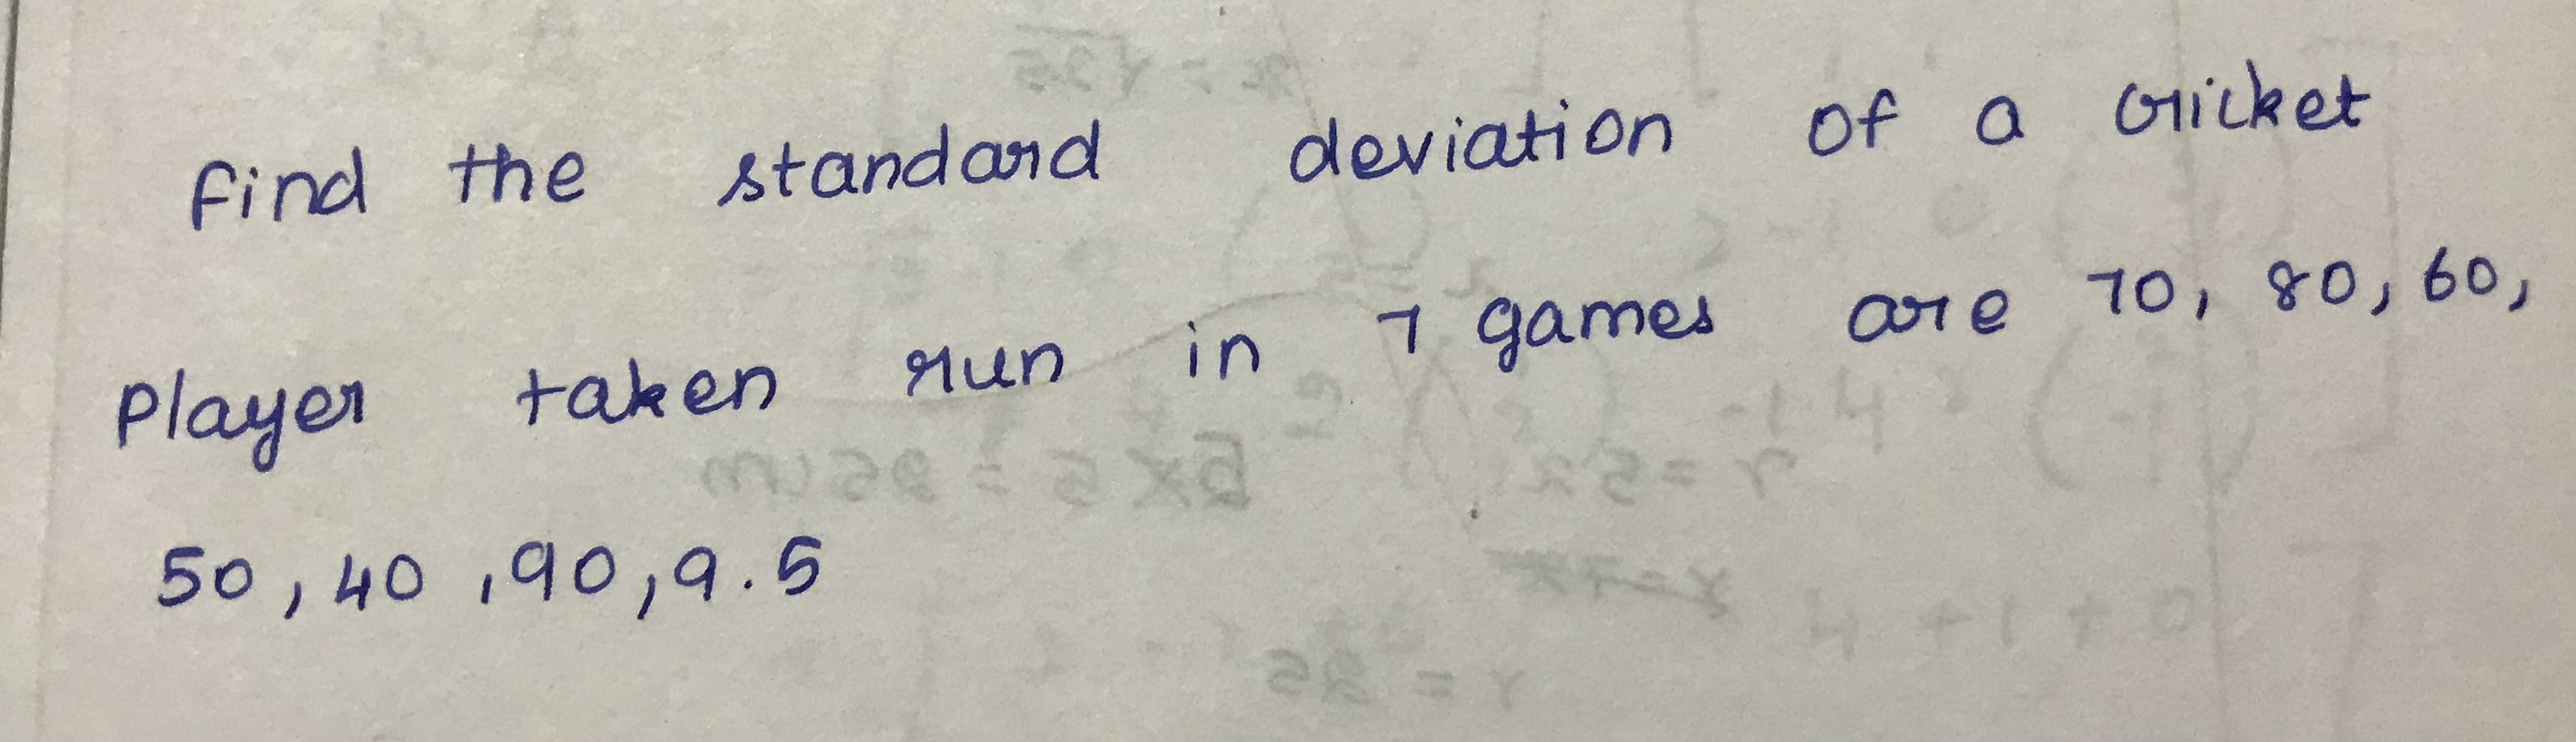 Find the standard deviation of a cricket
Player taken run in 7 games are 70, 80, 60,
50, 40, 90, 9.5